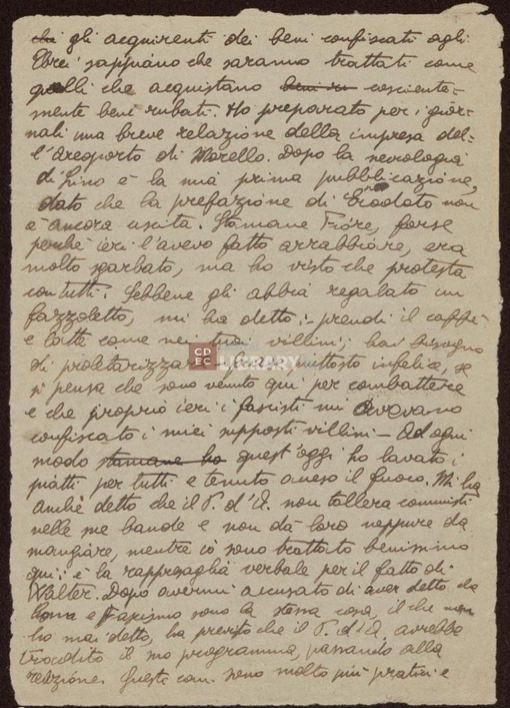 chi gli acquirenti dei beni confiscati agli
Ebrei sappiano che saranno trattati come
quelli che acquistano beni ru cosciente=
mente beni rubati. Ho preparato per i gior=
nali una breve relazione della impresa del=
l'Areoporto di Morello. Dopo la necrologia
di Lino è la mia prima pubblicazione,
dato che la prefazione di Erodoto non
è ancora uscita. Stamane Fiore, forse
perché ieri l'avevo fatto arrabbiare, era
molto sgarbato, ma ho visto che protesta
con tutti. Sebbene gli abbia regalato un
fazzoletto, mi ha detto: prendi il caffè
e latte come nei tuoi villini; hai bisogno
di proletarizza piuttosto infelice, se
si pensa che sono venuto qui per combattere
e che proprio ieri i fascisti mi avevano
confiscato i miei supposti villini — Ad ogni
modo stamane ho quest'oggi ho lavato i
piatti per tutti e tenuto acceso il fuoco. Mi ha
anche detto che il P. d'A. non tollera comunisti
nelle sue bande e non dà loro neppure da
mangiare, mentre io sono trattato benissimo
qui: è la rappresaglia verbale per il fatto di
Walter. Dopo avermi accusato di aver detto che
e Fascismo sono la stessa cosa, il che non
ho mai detto, ha previsto che il P. d'A. avrebbe
tradito il suo programma, passando alla
reazione. Queste cose sono molto più pratici e
CDEC LIBRARY